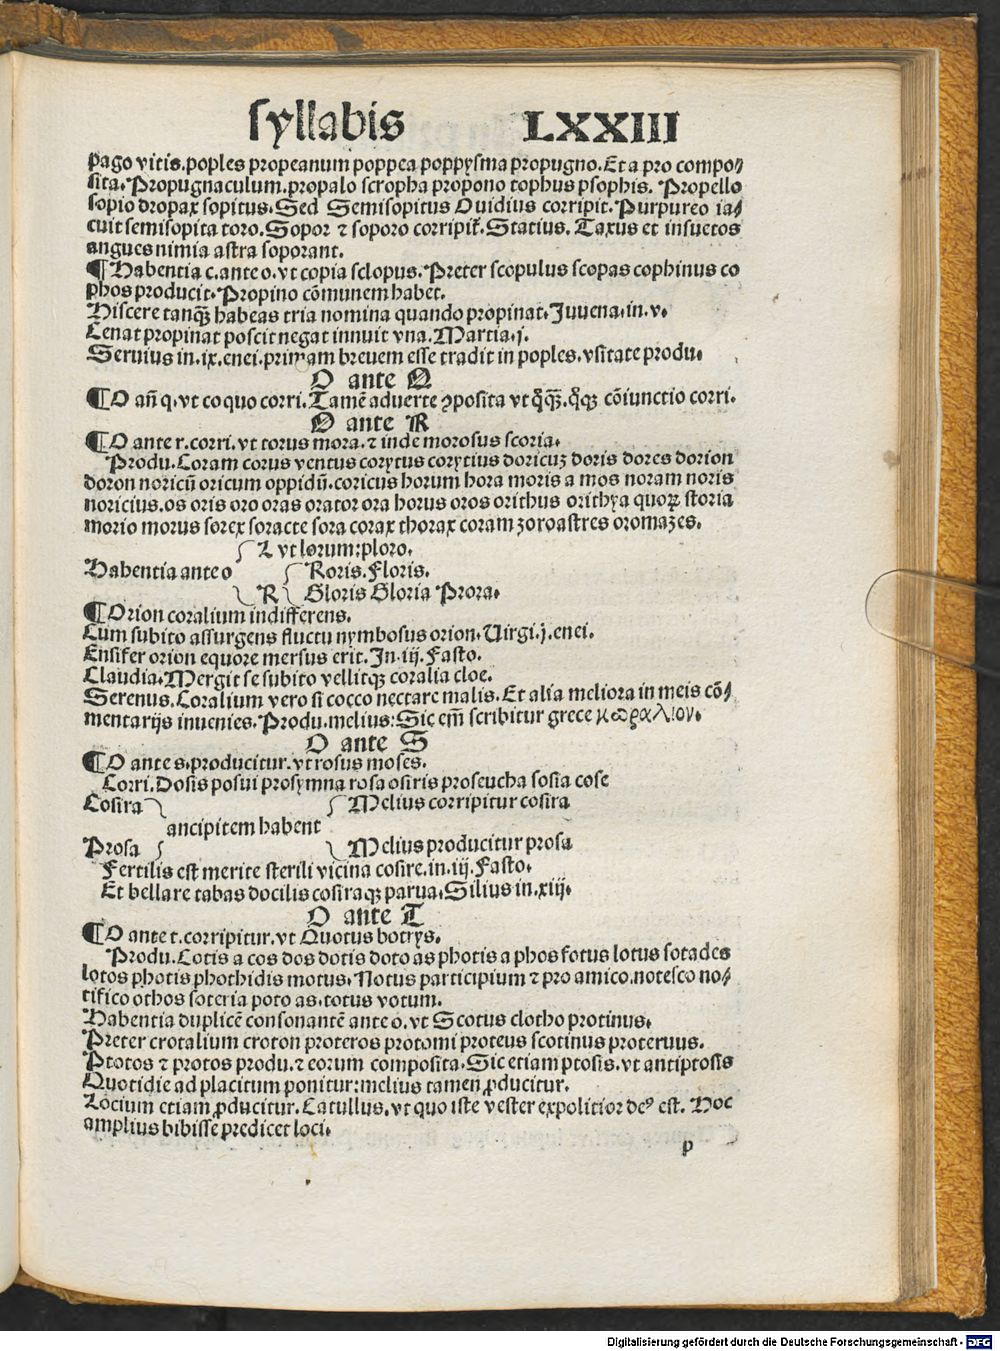 syllabis LXXIII
pago vitis.poples propeanum poppea poppysma propugno.Et a pro compo/
sita.Propugnaculum.propalo scropha propono tophus psophis. Propello
sopio dropax sopitus.Sed Semisopitus Ouidius corripit.Purpureo ia/
cuit semisopita toro.Sopor ⁊ soporo corripiũt.Statius. Taxus et insuetos
angues nimia astra soporant.
¶Habentia c.ante o.vt copia sclopus.Preter scopulus scopas cophinus co
phos producit.Propino cõmunem habet.
Hiscere tanqꝫ habeas tria nomina quando propinat.Juuena.in.v.
Cenat propinat poscit negat innuit vna.Martia.j.
Seruius in.ix.enei.primam breuem esse tradit in poples.vsitate produ.
O ante Q
¶O añ q.vt coquo corri.Tamẽ aduerte ꝯposita vt q̃qꝫ.q̃qꝫ cõiunctio corri.
O ante R
¶O ante r.corri.vt torus mora.⁊ inde morosus scoria.
Produ.Coram corus ventus corytus corytius doricuꝫ doris dores dorion
doron noricũ oricum oppidũ.coricus horum hora moris a mos noram noris
noricius.os oris oro oras orator ora horus oros orithus orithya quoꝝ storia
morio morus sorex soracte sora corax thorax coram zoroastres oromazes.
L vt lorum:ploro.
Habentia ante o Roris.Floris.
R Gloris Gloria Prora.
¶Orion coralium indifferens.
Cum subito assurgens fluctu nymbosus orion.Uirgi.j.enei.
Ensifer orion equore mersus erit.In.iij.Fasto.
Claudia.Mergit se subito vellitqꝫ coralia cloe.
Serenus.Coralium vero si cocco nectare malis.Et alia meliora in meis cõ/
mentarijs inuenies.Produ.melius:Sic em̃ scribitur grece κωραλιον.
O ante S
¶O ante s.producitur.vt rosus moses.
Corri.Dosis posui prosymna rosa osiris proseucha sosia cose
Cosira Melius corripitur cosira
ancipitem habent
Prosa Melius producitur prosa
Fertilis est merite sterili vicina cosire.in.iij.Fasto.
Et bellare tabas docilis cosiraqꝫ parua.Silius in.xiij.
O ante T
¶O ante t.corripitur.vt Quotus botrys.
Produ.Cotis a cos dos dotis doto as photis a phos fotus lotus sotades
lotos photis phothidis motus.Notus participium ⁊ pro amico.notesco no/
tifico othos soteria poto as.totus votum.
Habentia duplicẽ consonantẽ ante o.vt Scotus clotho protinus.
Preter crotalium croton proteros protomi proteus scotinus proteruus.
Ptotos ⁊ protos produ.⁊ eorum composita.Sic etiam ptosis.vt antiptosis
Quotidie ad placitum ponitur:melius tamen ꝓducitur.
Locium etiam ꝓducitur.Catullus.vt quo iste vester expolitior deꝰ est. Hoc
amplius bibisse predicet loci.
p
Digitalisierung gefördert durch die Deutsche Forschungsgemeinschaft - DFG